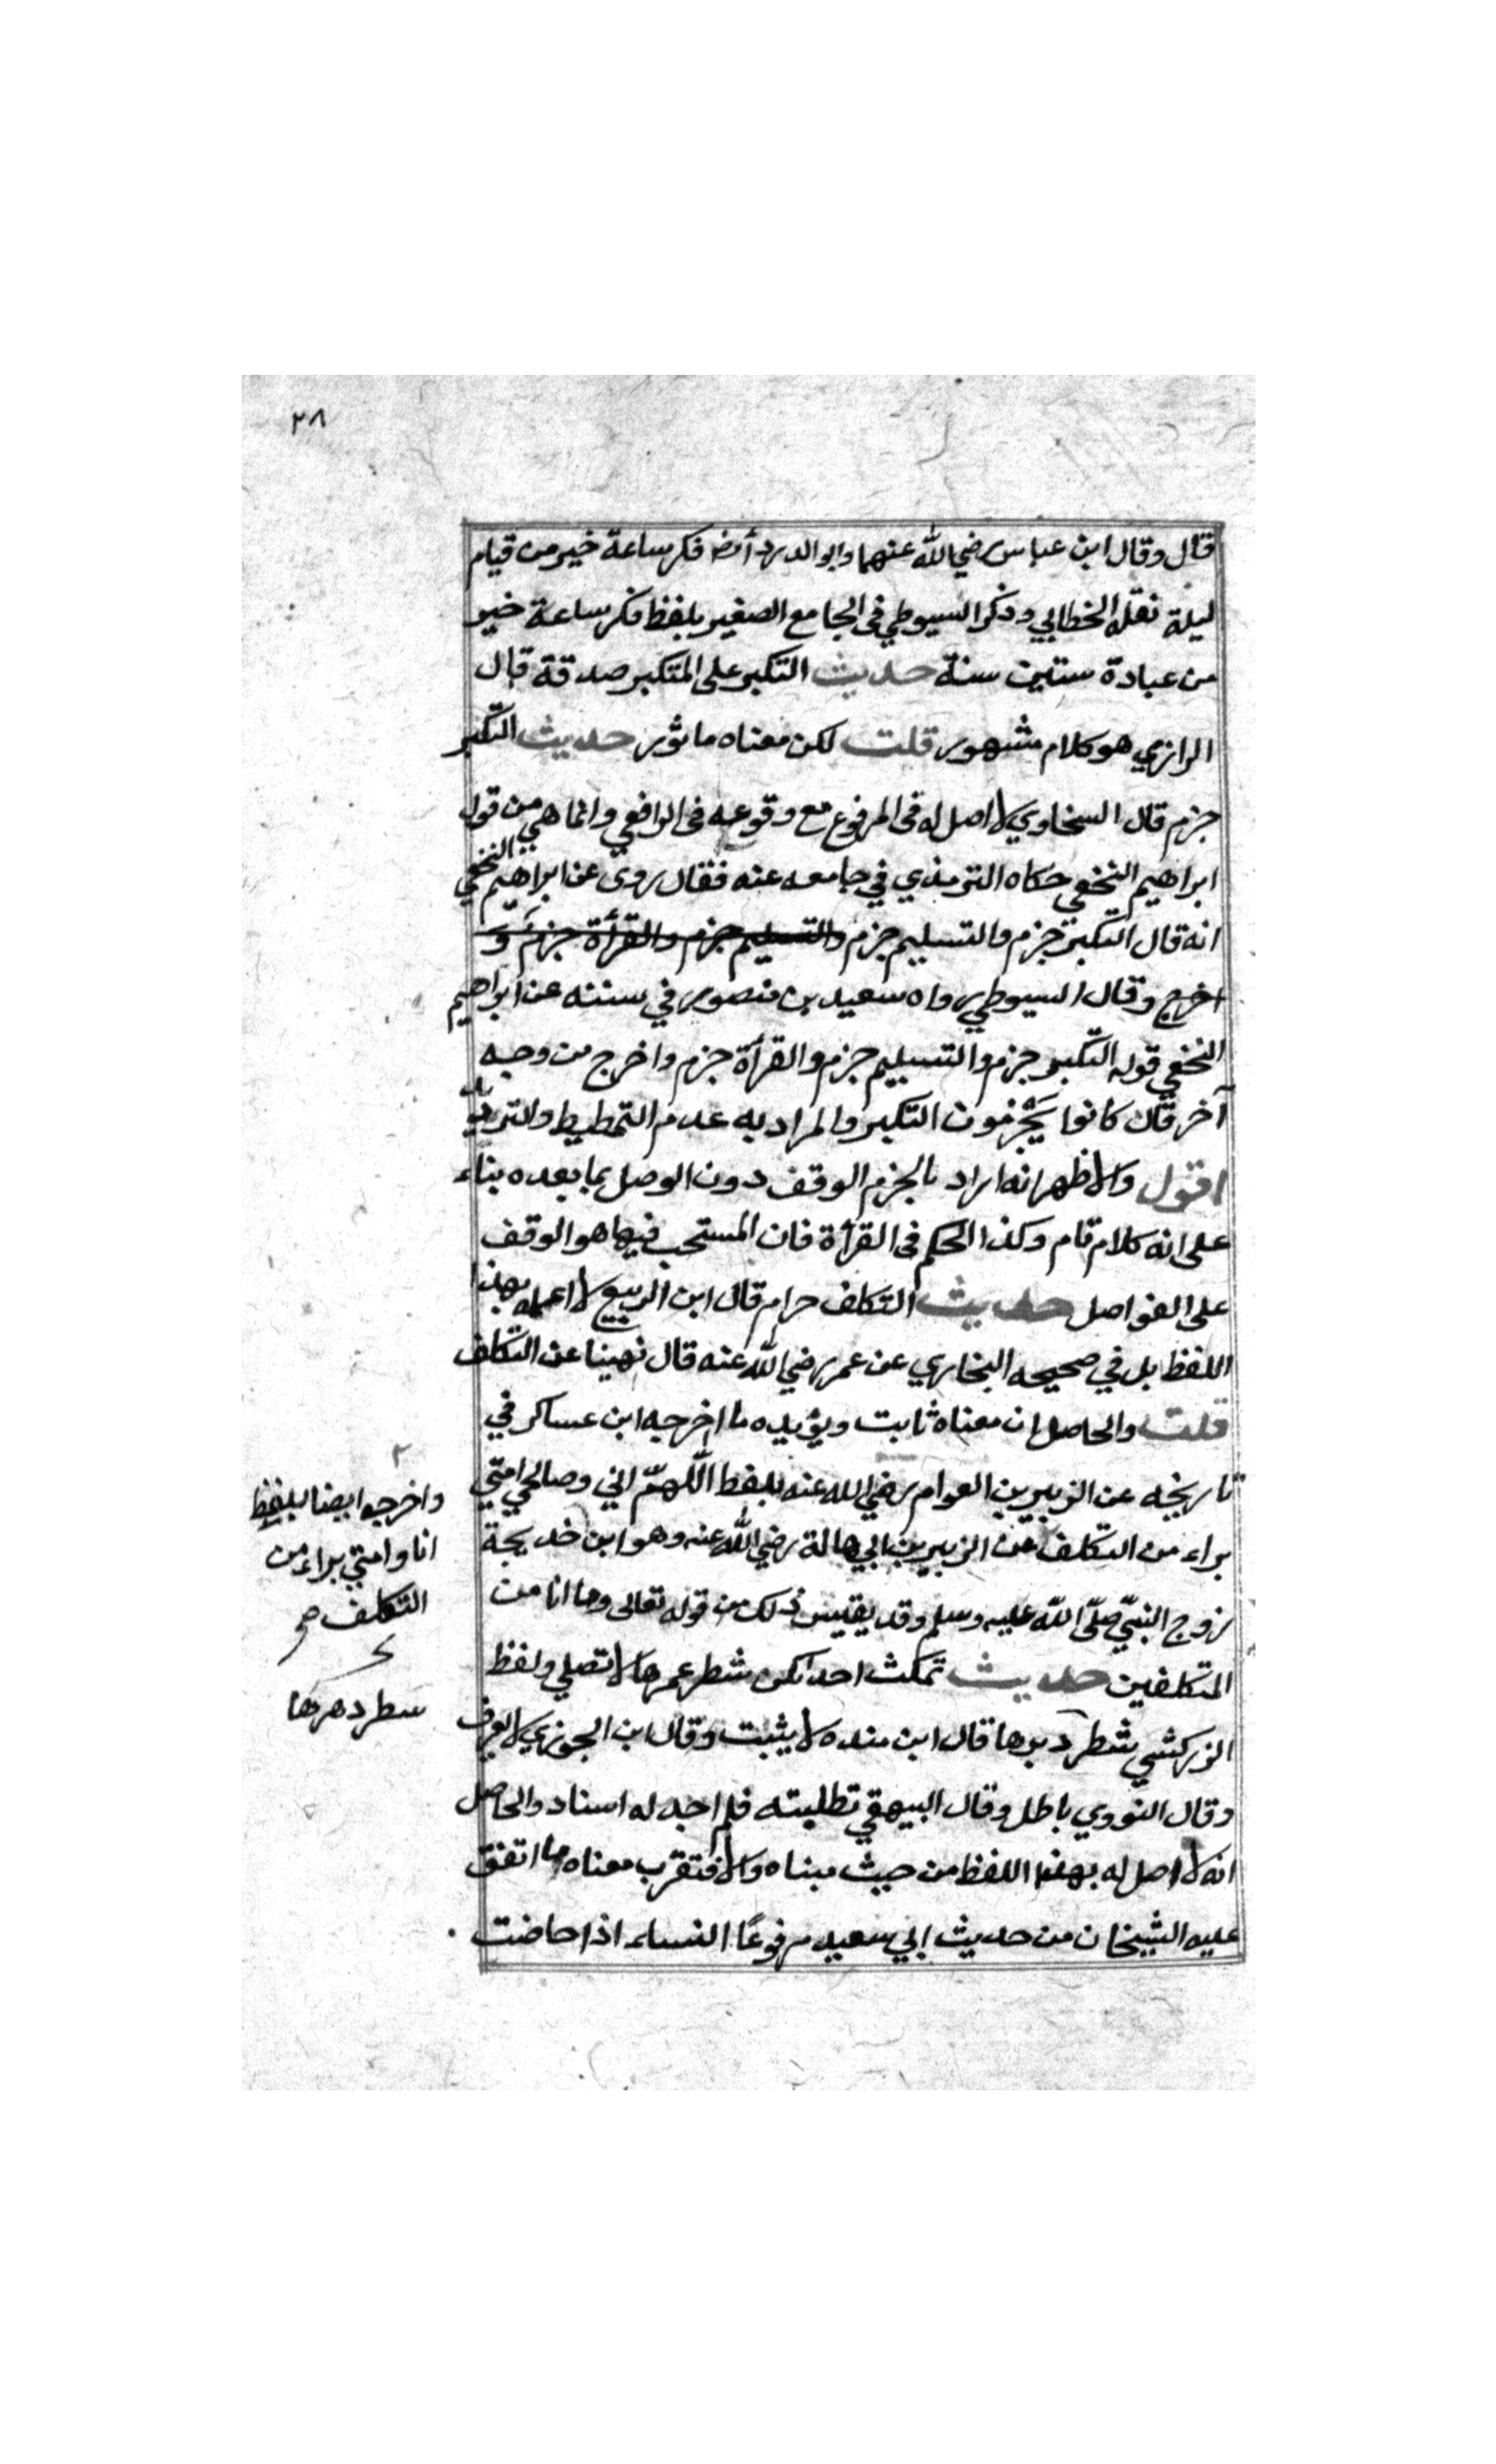 ٢٨
قال وقال ابن عباس رضي الله عنهما وابو الدرداء فكر ساعة خير من قيام
ليلة نقله الخطابي وذكر السيوطي في الجامع الصغير بلفظ فكر ساعة خير
من عبادة ستين سنة حديث التكبر على المتكبر صدقة قال
الرازي هو كلام مشهور قلت لكن معناه ماثور حديث التكبير
جزم قال السخاوي لا اصل له في المرفوع مع وقوعه في الرافعي وانما هي من قول
ابراهيم النخعي حكاه الترمذي في جامعه عنه فقال روى عن ابراهيم النخعي
انه قال التكبير جزم والتسليم جزم والتسليم جزم والقرأة جزم و
اخرج وقال السيوطي رواه سعيد بن منصور في سننه عن ابراهيم
النخعي قوله التكبير جزم والتسليم جزم والقرأة جزم واخرج من وجه
آخر قال كانوا يجزمون التكبير والمراد به عدم التمطيط والترديد
اقول والاظهر انه اراد بالجزم الوقف دون الوصل بما بعده بناء
على انه كلام تام وكذا الحكم في القرأة فان المستحب فيها هو الوقف
على الفواصل حديث التكلف حرام قال ابن الربيع لا اعلمه بهذا
اللفظ بل في صحيحه البخاري عن عمر رضي الله عنه قال نهينا عن التكلف
قلت والحاصل ان معناه ثابت ويؤيده ما اخرجه ابن عساكر في
تاريخه عن الزبير بن العوام رضي الله عنه بلفظ اللهم اني وصالحي امتي
براء من التكلف عن الزبير بن ابي هالة رضي الله عنه وهو ابن خديجة
زوج النبي صلى الله عليه وسلم وقد يقتبس ذلك من قوله تعالى وما انا من
المتكلفين حديث تمكث احداكن شطر عمرها لا تصلي ولفظ
الزركشي شطر دهرها قال ابن منده لا يثبت وقال ابن الجوزي لا يعرف
وقال النووي باطل وقال البيهقي تطلبته فلم اجد له اسناد والحاصل
انه لا اصل له بهذا اللفظ من حيث مبناه والا فتقرب معناه ما اتفق
عليه الشيخان من حديث ابي سعيد مرفوعًا النساء اذا حاضت
واخرجه ايضا بلفظ
انا وامتي براء من
التكلف صح
شطر دهرها